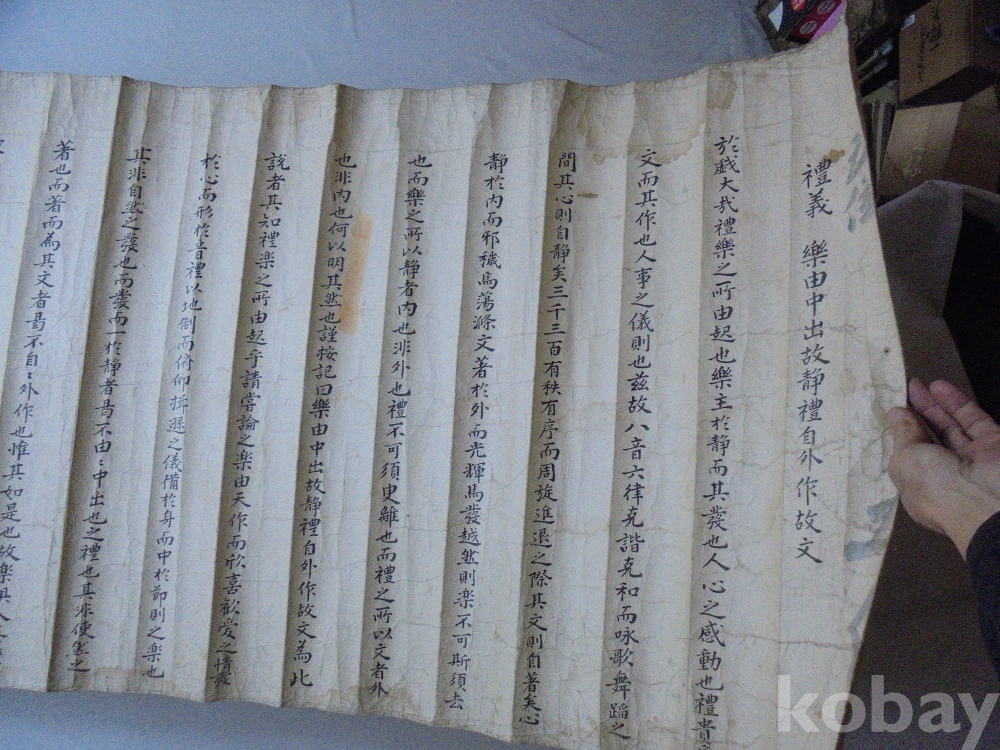 禮義 樂由中出故静禮自外作故文
於戱大哉禮樂之所由起也樂主於静而其發也人心之感動也禮貴
文而其作也人事之儀則也兹故八音六律克諧克和而咏歌舞蹈之
間其心則自静矣三千三百有秩有序而周旋進退之際其文則自著矣心
静於内而邪穢焉蕩滌文著於外而光輝焉發越然則楽不可斯須去
也而樂之所以静者内也非外也禮不可須臾離也而禮之所以文者外
也非内也何以明其然也謹按記曰樂由中出故静禮自外作故文為此
說者其知禮楽之所由起乎請嘗論之楽由天作而欣喜歡愛之情發
於心而形於音禮以地制而俯仰揖遜之儀備於身而中於節則之楽也
其非自然之發也而發而一於静者曷不由〻中出也之禮也其非使然之
著也而著而為其文者曷不自〻外作也惟其如是也故楽具
kobay